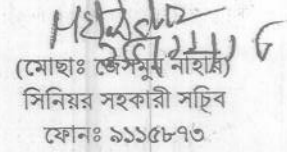 (মোছাঃ জেসমুন নাহার)
সিনিয়র সহকারী সচিব
ফোনঃ ৯১১৫৮৭৩